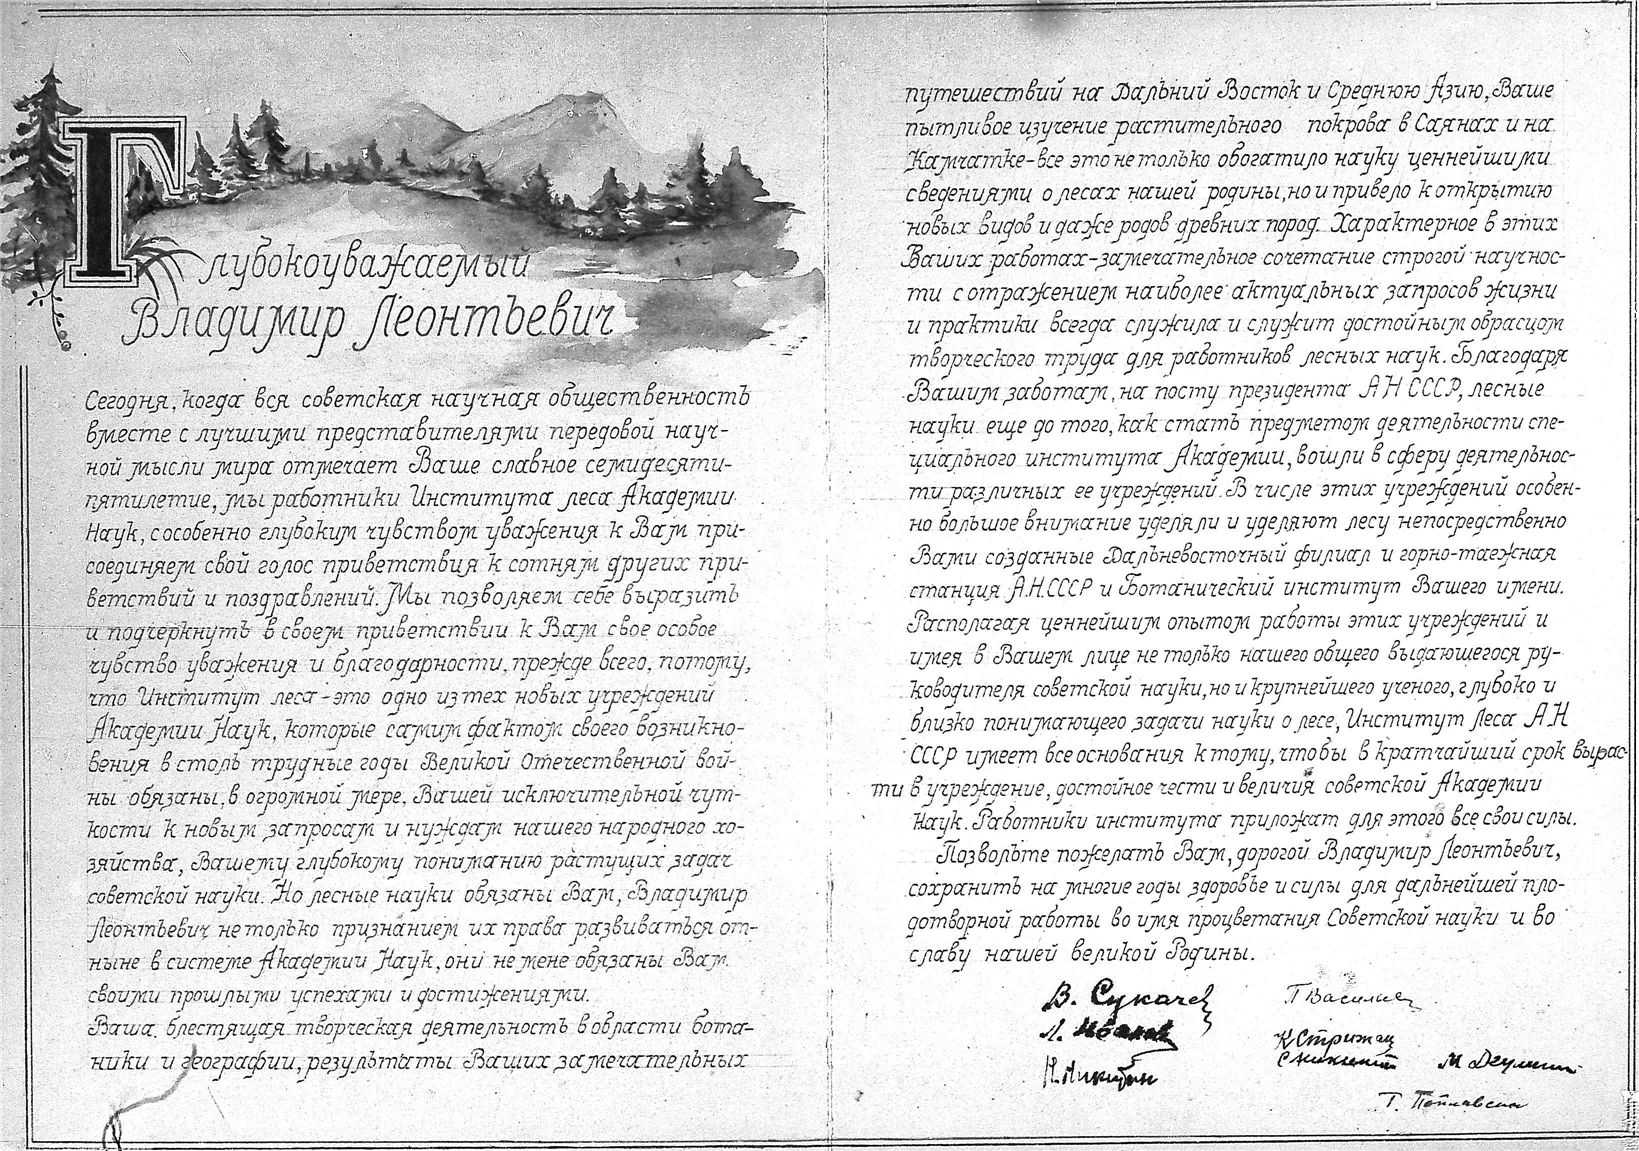 Глубокоуважаемый
Владимир Леонтьевич
Сегодня, когда вся советская научная общественность
вместе с лучшими представителями передовой науч-
ной мысли мира отмечает Ваше славное семидесяти-
пятилетие, мы работники Института леса Академии
Наук, с особенно глубоким чувством уважения к Вам при-
соединяем свой голос приветствия к сотням других при-
ветствий и поздравлений. Мы позволяем себе выразить
и подчеркнуть в своем приветствии к Вам свое особое
чувство уважения и благодарности, прежде всего, потому,
что Институт леса - это одно из тех новых учреждений
Академии Наук, которые самим фактом своего возникно-
вения в столь трудные годы Великой Отечественной вой-
ны обязаны, в огромной мере, Вашей исключительной чут-
кости к новым запросам и нуждам нашего народного хо-
зяйства, Вашему глубокому пониманию растущих задач
советской науки. Но лесные науки обязаны Вам, Владимир
Леонтьевич не только признанием их права развиваться от-
ныне в системе Академии Наук, они не мене обязаны Вам
своими прошлыми успехами и достижениями.
Ваша блестящая творческая деятельность в области бота-
ники и географии, результаты Ваших замечательных
путешествий на Дальний Восток и Среднюю Азию, Ваше
пытливое изучение растительного покрова в Саянах и на
Камчатке - все это не только обогатило науку ценнейшими
сведениями о лесах нашей родины, но и привело к открытию
новых видов и даже родов древних пород. Характерное в этих
Ваших работах - замечательное сочетание строгой научнос-
ти с отражением наиболее актуальных запросов жизни
и практики всегда служила и служит достойным обрасцом
творческого труда для работников лесных наук. Благодаря
Вашим заботам, на посту президента АН СССР, лесные
науки еще до того, как стать предметом деятельности спе-
циального института Академии, вошли в сферу деятельнос-
ти различных ее учреждений. В числе этих учреждений особен-
но большое внимание уделяли и уделяют лесу непосредственно
Вами созданные Дальневосточный филиал и горно-таежная
станция А.Н.СССР и Ботанический институт Вашего имени.
Располагая ценнейшим опытом работы этих учреждений и
имея в Вашем лице не только нашего общего выдающегося ру-
ководителя советской науки, но и крупнейшего ученого, глубоко и
близко понимающего задачи науки о лесе, Институт Леса А.Н
СССР имеет все основания к тому, чтобы в кратчайший срок вырас-
ти в учреждение, достойное чести и величия советской Академии
Наук. Работники института приложат для этого все свои силы.
Позвольте пожелать Вам, дорогой Владимир Леонтьевич,
сохранить на многие годы здоровье и силы для дальнейшей пло-
дотворной работы во имя процветания Советской науки и во
славу нашей великой Родины.
В. Сукачев
Л. Иванов
Н. Никитин